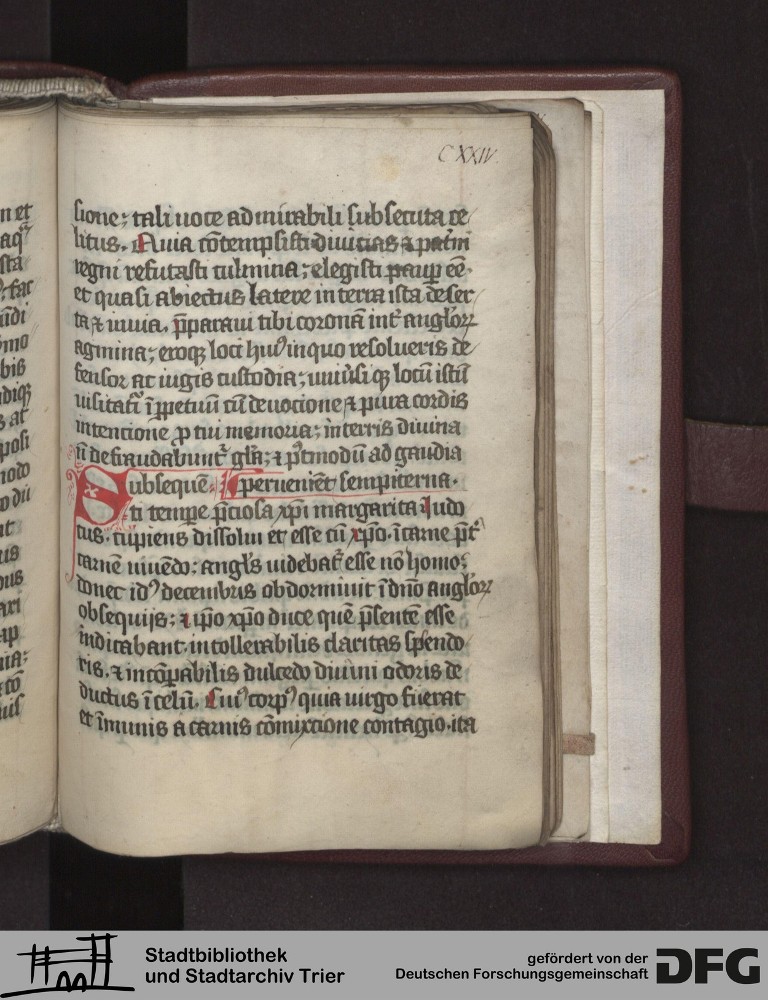 CXXIV.
sione; tali uoce admirabili subsecuta ce
litus. Quia cōtempsisti diuicias ⁊ patrū
regni refutasti culmina; elegisti paup̄ eē
et quasi abiectus latere in terra ista deser
ta ⁊ inuia. p̄paraui tibi coronā int̄ angloꝝ
agmina; eroqꝫ loci huiꝰ in quo resolueris de
fensor ac iugis custodia; vniūsi qꝫ locū istū
uisitātꝭ ī ppetuū cū deuocione ⁊ pura cordis
intencione ꝓ tui memoria; in terris diuina
nō defraudabunt᷑ glā; ⁊ pꝰtmodū ad gaudia
ubsequē. perueniēt sempiterna.
ti tempe p̄ciosa xp̄i margarita Iudo
cus. cupiens dissolui et esse cū xp̄o. ī carne p̄t᷑
carnē uiuēdo; angl̄s uidebat᷑ esse nō homo;
donec idꝰ decembris obdormiuit ī dn̄o angloꝝ
obsequijs; ⁊ ip̄o xp̄o duce quē p̄sentē esse
indicabant. intollerabilis claritas splendo
ris. ⁊ incōp̄abilis dulcedo diuini odoris de
ductus ī celū. Cuiꝰ corpꝰ quia uirgo fuerat
et īmunis a carnis cōmixcione contagio. ita
Stadtbibliothek
und Stadtarchiv Trier
gefördert von der
Deutschen Forschungsgemeinschaft
DFG